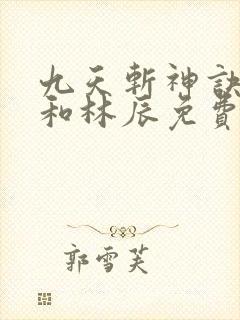 九天斬神訣
和林辰免費
郭雪芙